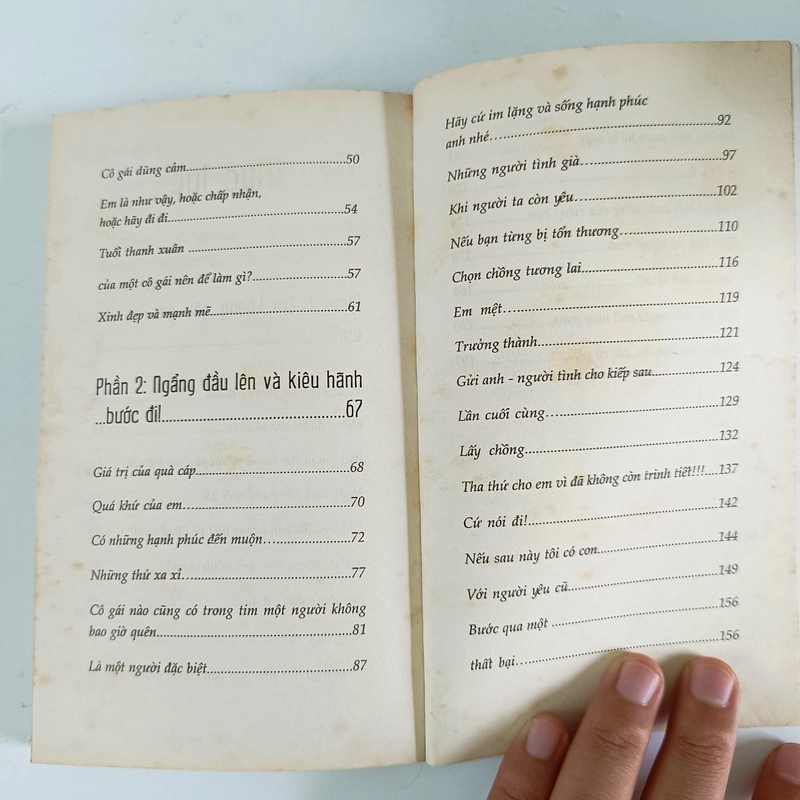 Cô gái dũng cảm................................................50
Em là như vậy, hoặc chấp nhận,
hoặc hãy đi đi....................................................54
Tuổi thanh xuân ................................................57
của một cô gái nên để làm gì?............................57
Xinh đẹp và mạnh mẽ.........................................61
Phần 2: Ngẩng đầu lên và kiêu hãnh
...bước đi!............................................67
Giá trị của quà cáp..............................................68
Quá khứ của em..................................................70
Có những hạnh phúc đến muộn..........................72
Những thứ xa xỉ..................................................77
Cô gái nào cũng có trong tim một người không
bao giờ quên.......................................................81
Là một người đặc biệt.........................................87
Hãy cứ im lặng và sống hạnh phúc
anh nhé...............................................................92
Những người tình già..........................................97
Khi người ta còn yêu.........................................102
Nếu bạn từng bị tổn thương..............................110
Chọn chồng tương lai........................................116
Em mệt..............................................................119
Trưởng thành....................................................121
Gửi anh - người tình cho kiếp sau.....................124
Lần cuối cùng...................................................129
Lấy chồng.........................................................132
Tha thứ cho em vì đã không còn trinh tiết!!!...137
Cứ nói đi!..........................................................142
Nếu sau này tôi có con......................................144
Với người yêu cũ...............................................149
Bước qua một ...................................................156
thất bại..............................................................156